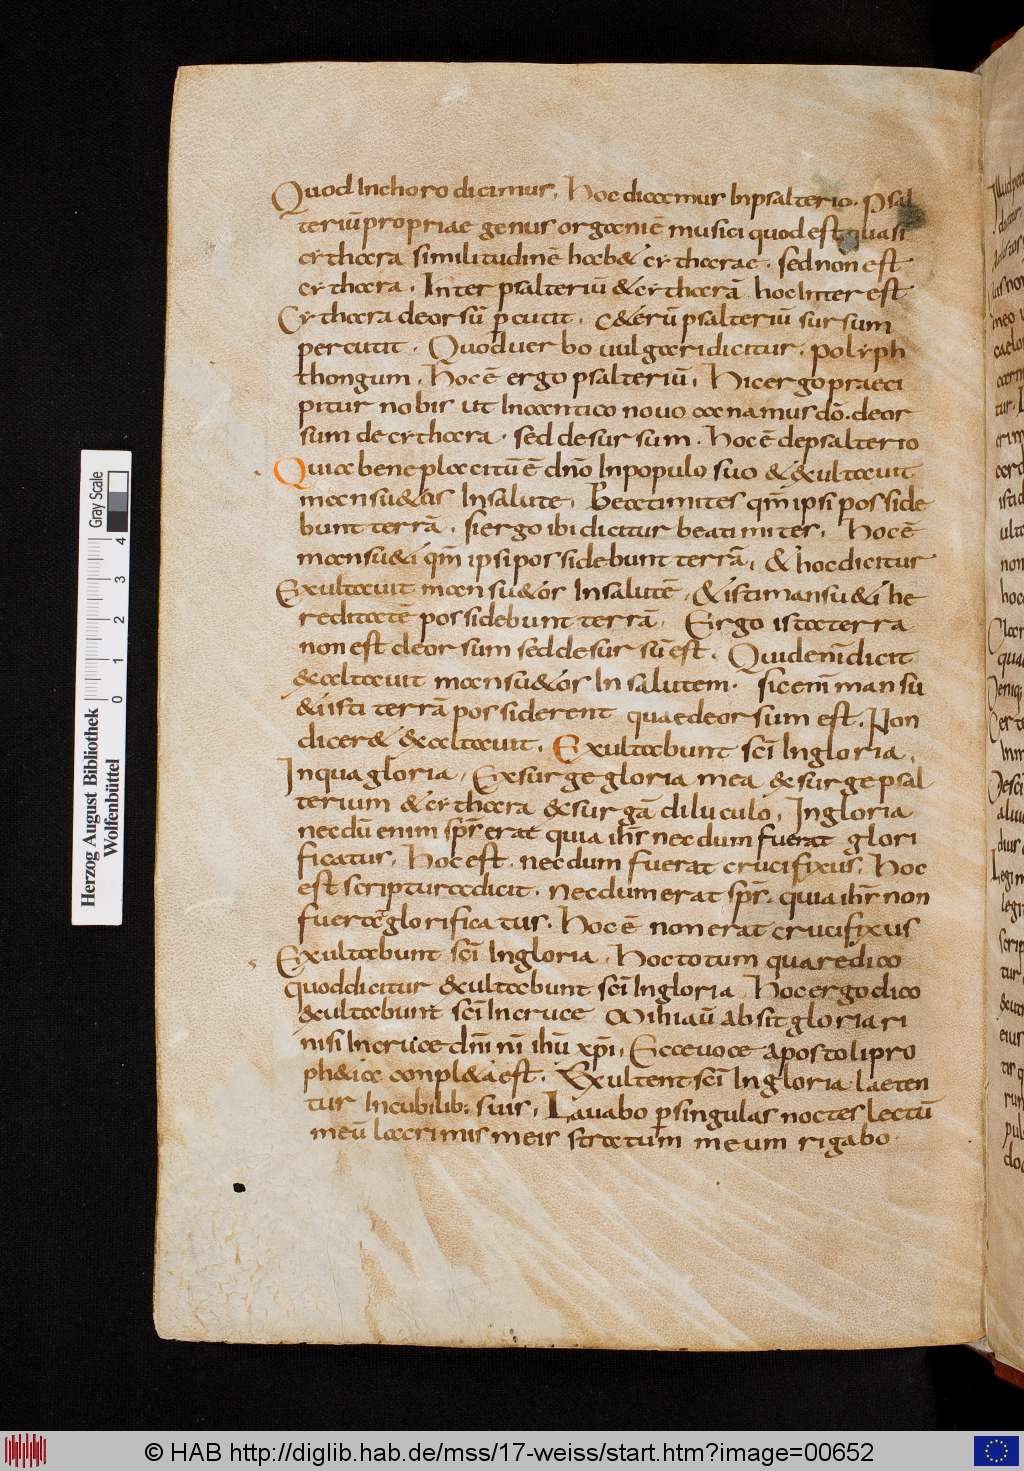 Quod Inchoro dicimus, hoc dicamus Inpsalterio. psal
teriū propriae genus organiē musici quod est quasi
cythara similitudinē hab& cytharae. sed non est
cythara. Inter psalteriū & cytharā hoc Inter est
Cythara deorsū p̱cutit. c&erū psalteriū sursum
percutit. Quod uerbo uulgari dicitur. polyph
thongum. hoc ē ergo psalteriū, hic ergo praeci
pitur nobis ut Incantico nouo canamus dō. deor
sum de cythara. sed desursum. hoc ē depsalterio
Quia beneplacitū ē dn̄o Inpopulo suo & &ultauit
mansu&os Insalute, Beatimites qm̄ ipsi posside
bunt terrā. siergo ibi dicitur beati mites, hoc ē
mansu&i qm̄ ipsi possidebunt terrā, & hoc dicitur
Exultauit mansu&os Insalutē, & isti mansu&i he
reditatē possidebunt terrā, Ergo ista terra
non est deorsum sed desursū est. Quid enī dicit
&altauit mansu&os In salutem. sic enī mansu
&i isti terrā possiderent quae deorsum est. Non
dicer& &altauit. Exultabunt scī Ingloria,
In qua gloria, Exsurge gloria mea &surge psal
terium & cythara &surgā diluculo, Ingloria
necdū enim spr̄ erat quia ihr̄ necdum fuerat glori
ficatur, hoc est. necdum fuerat crucifyxus, hoc
est scriptura dicit. necdum erat spr̄. quia ihr̄ non
fuerat glorificatus. hoc ē non erat crucifyxus
Exultabunt scī Ingloria. hoc totum quare dico
quod dicitur &ultabunt scī Ingloria hoc ergo dico
&ultabunt scī Incruce Mihi aū absit gloriari
nisi Incruce dn̄i n̄i ihū xp̄i, Ecce uoce apostoli pro
ph&ia conpl&a est. Exultent scī Ingloria laeten
tur Incubilib; suis, Lauabo p̱ singulas noctes lectū
meū lacrimis meis stratum meum rigabo.
Herzog August Bibliothek
Wolfenbüttel
Gray Scale
0 1 2 3 4
© HAB http://diglib.hab.de/mss/17-weiss/start.htm?image=00652